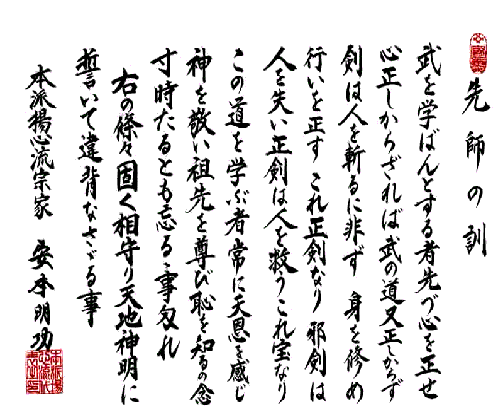 先師の訓
武を学ばんとする者先づ心を正せ
心正しからざれば武の道又正しからず
剣は人を斬るに非ず 身を修め
行いを正す これ正剣なり 邪剣は
人を失い正剣は人を救うこれ宝なり
この道を学ぶ者常に天恩を感じ
神を敬い祖先を尊び恥を知るの念
寸時たるとも忘る事勿れ
右の條々固く相守り天地神明に
誓いて違背なさざる事
本派揚心流宗家 安本明功